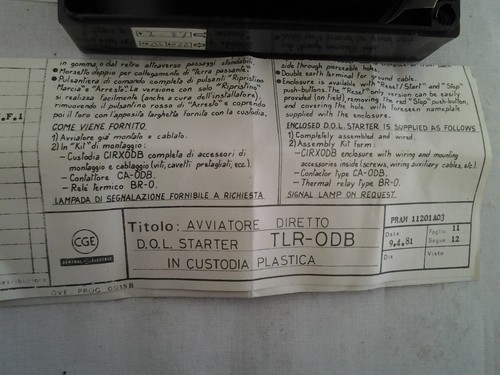 in gomma, o dal retro attraverso passaggi
• Morsetto doppio per collegamento di "terra passante".
• Pulsantiera di comando completa di pulsanti "Ripristino
Marcia" e "Arresto". La versione con solo "Ripristino"
si realizza facilmente (anche a cura dell'installatore)
rimuovendo il pulsantino rosso di "Arresto" e coprendo
poi il foro con l'apposita targhetta fornita con la custodia.
COME VIENE FORNITO
1) Avviatore già montato e cablato.
2) In "Kit" di montaggio:
- Custodia CIRXODB completa di accessori di
montaggio e cablaggio (viti, cavetti pretagliati, ecc.).
- Contattore CA-ODB.
- Relè termico BR-O.
LAMPADA DI SEGNALAZIONE FORNIBILE A RICHIESTA
side through
• Double earth terminal for ground cable.
• Enclosure is available with "Reset/Start" and "Stop"
push-buttons. The "Reset" only version can be easily
provided (on field), removing the red "Stop" push-button,
and covering the hole with foreseen nameplate
supplied with the enclosure.
ENCLOSED D.O.L. STARTER IS SUPPLIED AS FOLLOWS
1) Completely assembled and wired.
2) Assembly Kit form:
- CIRXODB enclosure with wiring and mounting
accessories inside (screws, wiring auxiliary cables, etc.)
- Contactor type CA-ODB.
- Thermal relay type BR-O.
SIGNAL LAMP ON REQUEST.
CGE
GENERAL ELECTRIC
Titolo: AVVIATORE DIRETTO
D.O.L. STARTER TLR-ODB
IN CUSTODIA PLASTICA
PRAM 11201A03
Data:
9.4.81
Dis.
Foglio 11
Segue 12
Visto